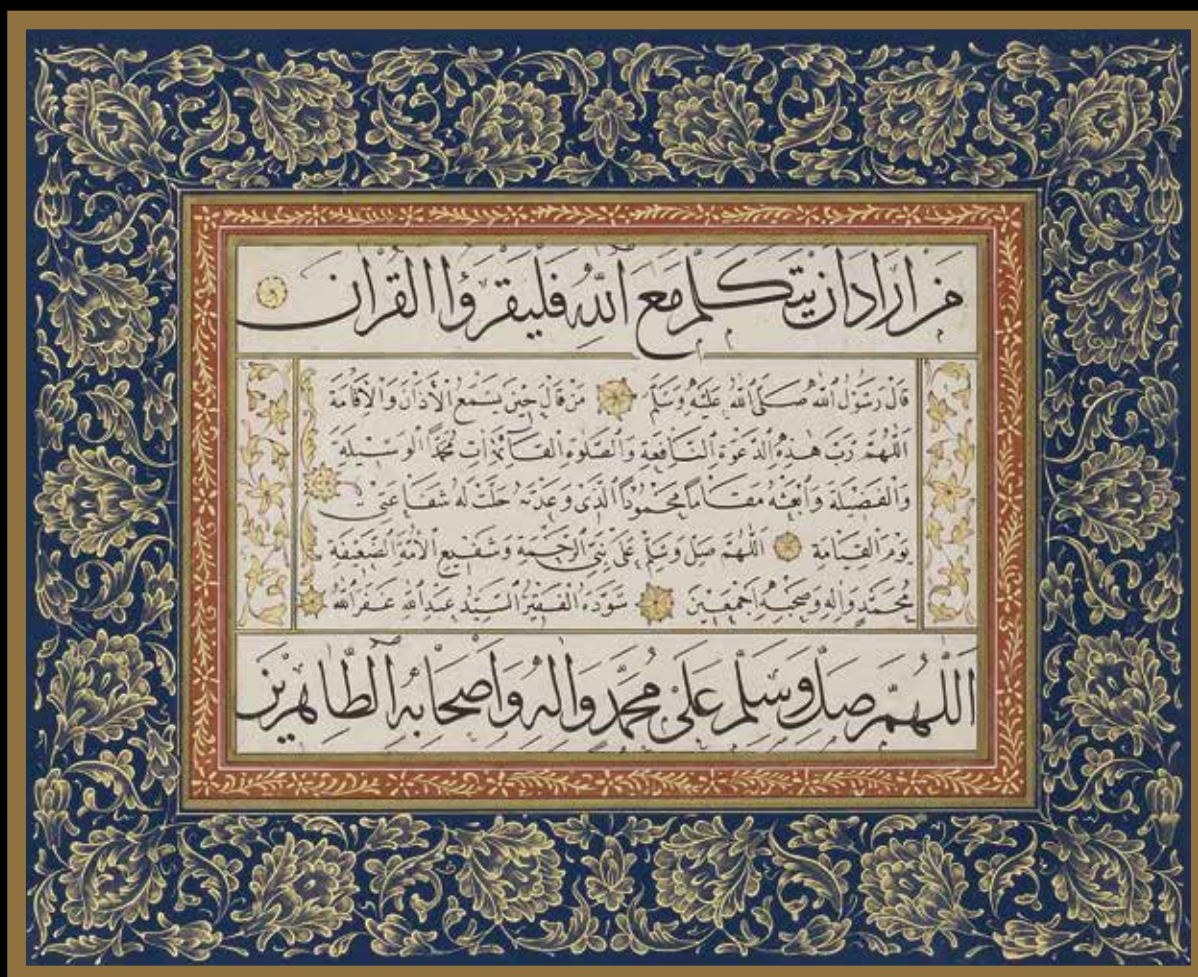 مَنْ اَرَادَ اَنْ يَتَكَلَّمَ مَعَ اللّٰهِ فَلْيَقْرَؤُا الْقُرْاٰنَ
قَالَ رَسُولُ اللّٰهِ صَلَّى اللّٰهُ عَلَيْهِ وَسَلَّمَ مَنْ قَالَ حِينَ يَسْمَعُ الْاَذَانَ وَالْاِقَامَةَ
اَللّٰهُمَّ رَبَّ هٰذِهِ الدَّعْوَةِ النَّافِعَةِ وَالصَّلٰوةِ الْقَائِمَةِ اٰتِ مُحَمَّدًا الْوَسِيلَةَ
وَالْفَضِيلَةَ وَابْعَثْهُ مَقَامًا مَحْمُودًا الَّذِى وَعَدْتَهُ حَلَّتْ لَهُ شَفَاعَتِى
يَوْمَ الْقِيَامَةِ اَللّٰهُمَّ صَلِّ وَسَلِّمْ عَلٰى نَبِىِّ الرَّحْمَةِ وَشَفِيعِ الْاُمَّةِ الضَّعِيفَةِ
مُحَمَّدٍ وَاٰلِهِ وَصَحْبِهِ اَجْمَعِينَ سَوَّدَهُ الْفَقِيرُ السَّيِّدُ عَبْدُ اللّٰهِ غَفَرَ اللّٰهُ
اَللّٰهُمَّ صَلِّ وَسَلِّمْ عَلٰى مُحَمَّدٍ وَاٰلِهِ وَاَصْحَابِهِ الطَّاهِرِينَ